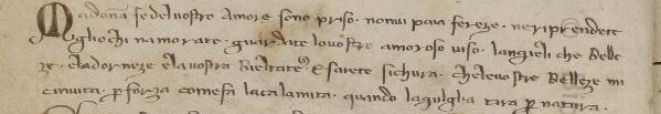 Madonã se delvostro amore sono priso · nonvi paia fereze · ne riprendete
gliochi namorate · guardate lovostro amoroso viso · langieli che belle
ze · eladorneze elavostra bieltate · & sarete sichura · chelevostre belleze mi
cinvita · p forza comesa lacalamita · quando laguglia tira p natura ·